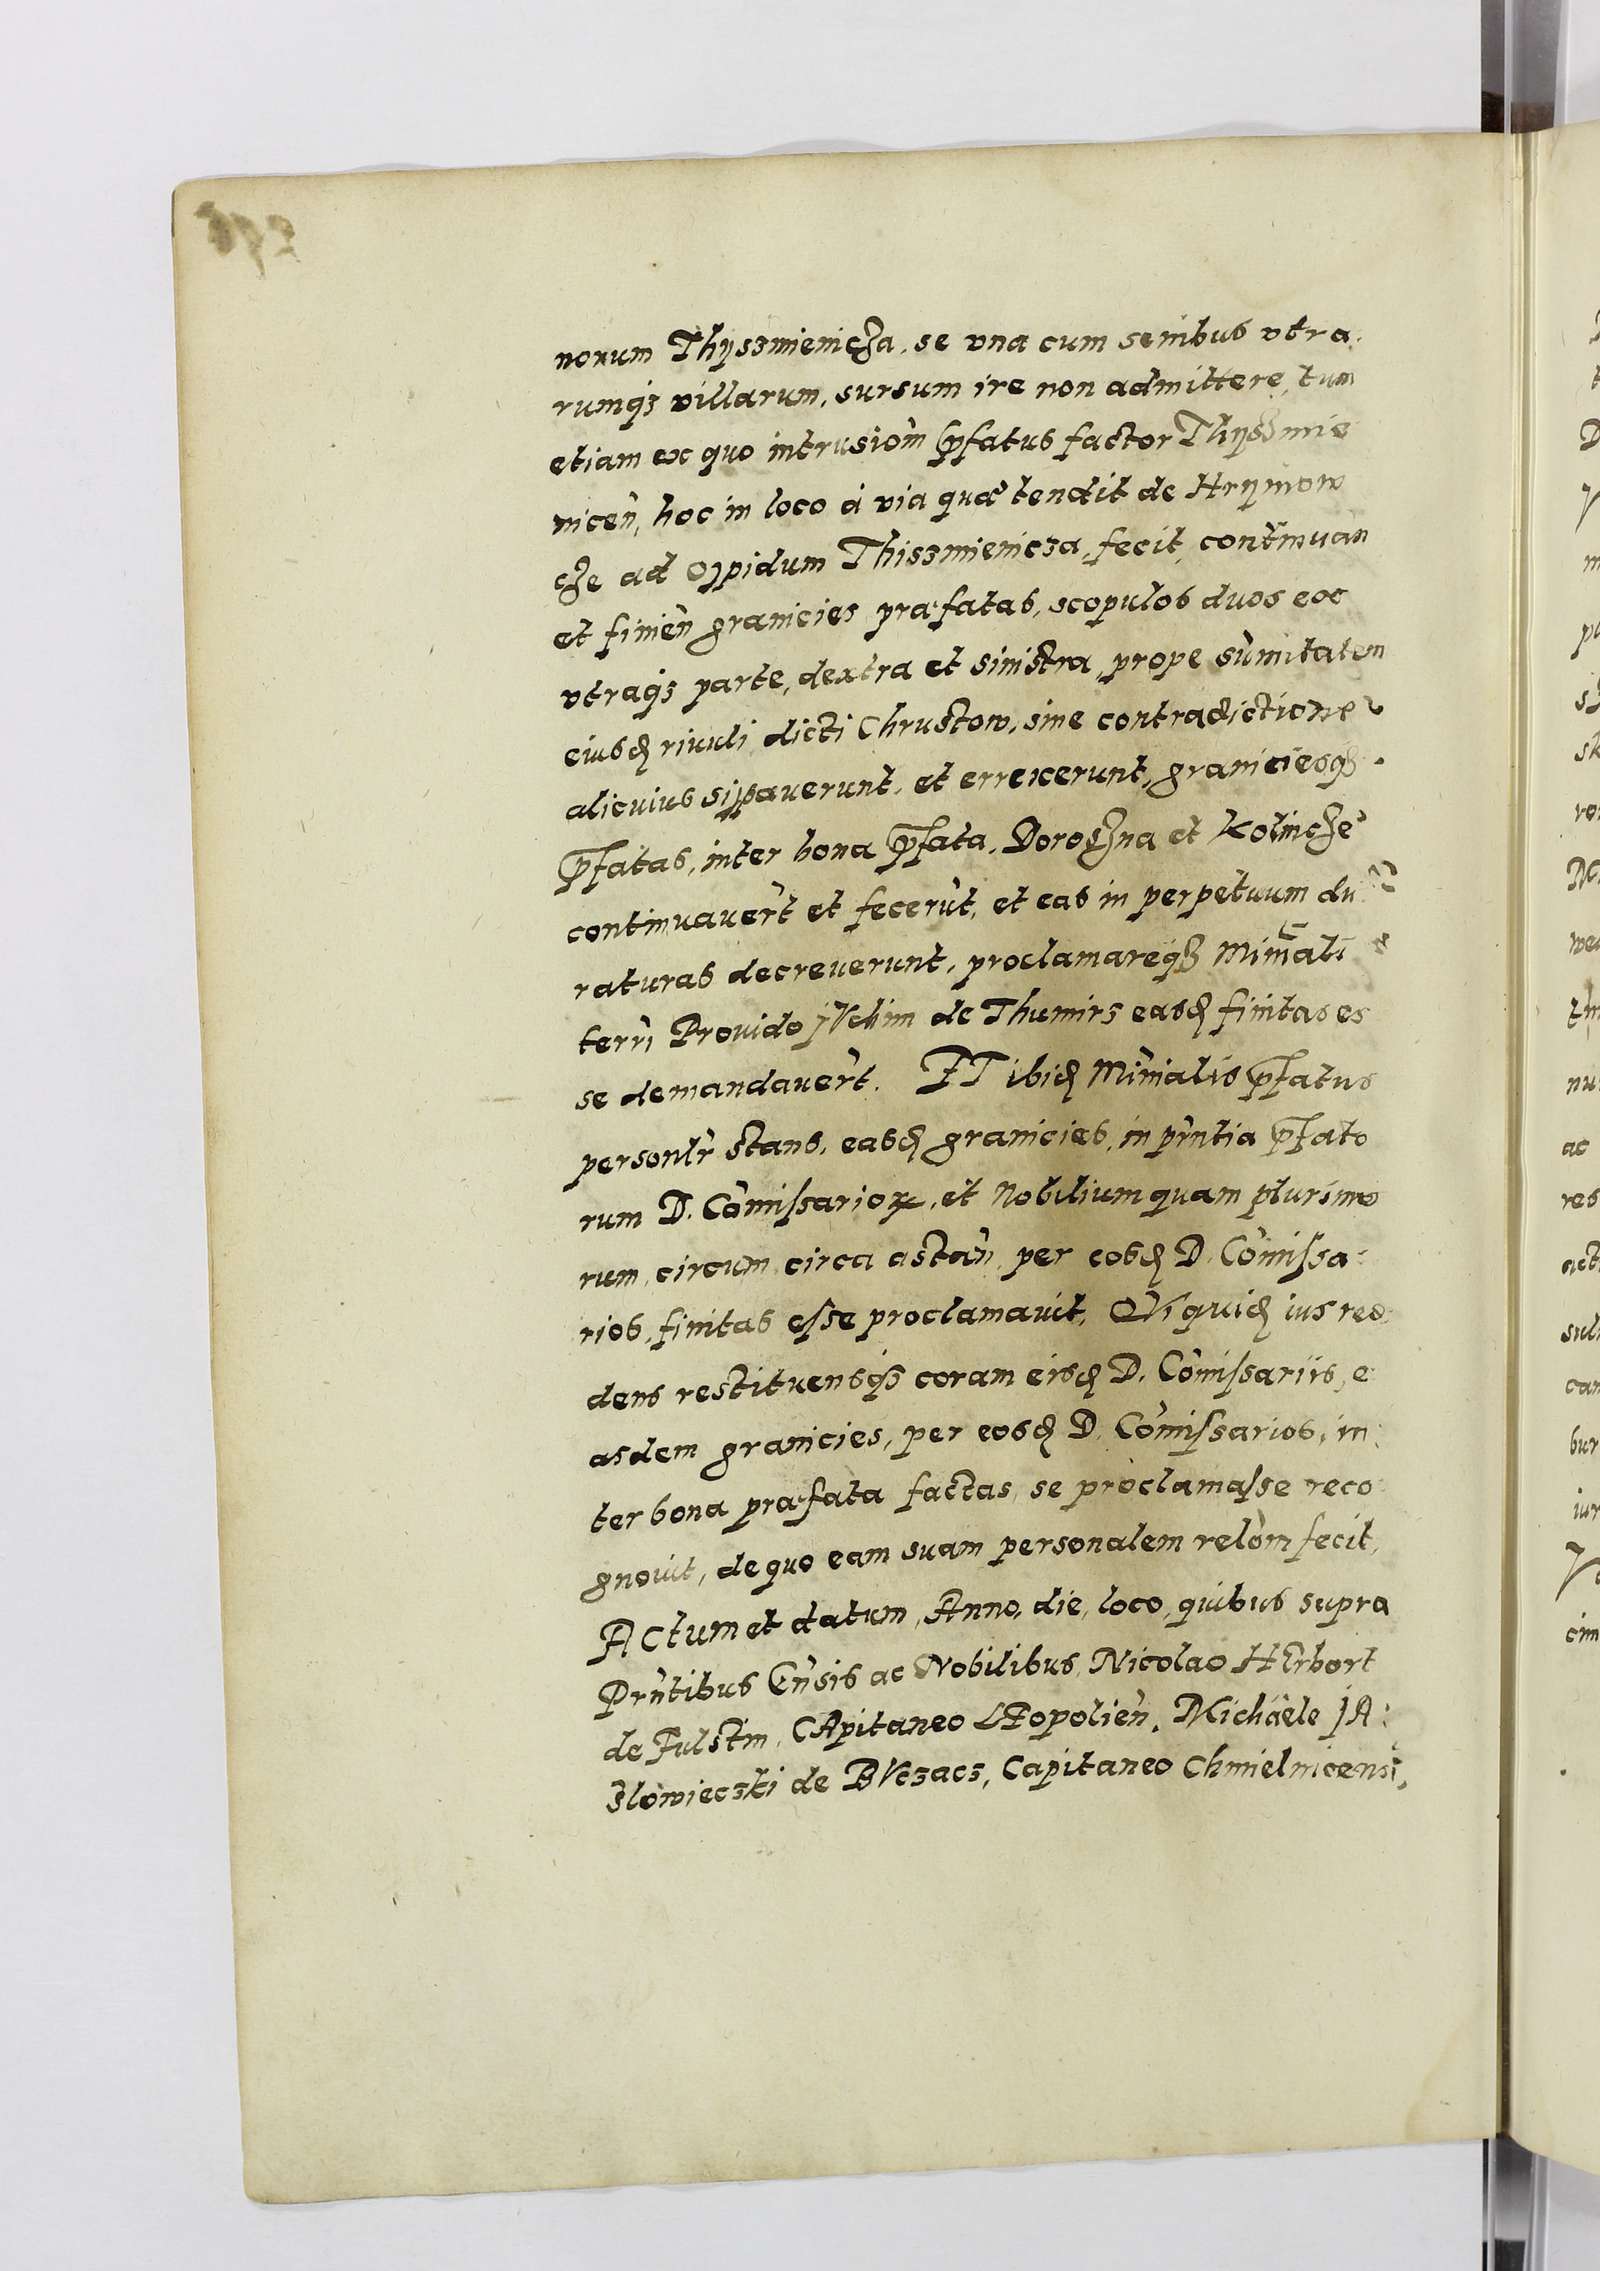 norum Thyszmienicza, se vna cum senibus vtra
rumqʒ villarum, sursum ire non admittere, tum
etiam ex quo intrusiom̃ p̃fatus factor Thyszmie
niceñ, hoc in loco á via quæ tendit de Hrymow
cze ad oppidum Thiszmienicza, fecit, continuañ
et finieñ granicies præfatas, scopulos duos ex
vtraqʒ parte, dextra et sinistra, prope sum̃itatem
eiusdẽ riuuli dicti Chrustow, sine contradictione
alicuius sippauerunt, et errexerunt, graniciesqʒ
p̃fatas, inter bona p̃fata, Doroszna et Kolincze
continuauer̃t et fecer̃ut, et eas in perpetuum du
raturas decreuerunt, proclamareqʒ Minr̃ali
terrr̃i Prouido jVchim de Thumirz easdẽ finitas es
se demandauer̃t. ET ibidẽ Minr̃ialis p̃fatus
personlr̃ stans, easdẽ granicies, in pñtia p̃fato
rum D. Com̃issarioꝝ, et Nobilium quam plurimo
rum, circum circa astañ, per eosdẽ D. Com̃issa:
rios, finitas esse proclamauit, QVi quidẽ ius red
dens restituensqʒ coram eisdẽ D. Com̃issariis, e
asdem granicies, per eosdẽ D. Com̃issarios, in
ter bona præfata factas, se proclamasse reco
gnouit, de quo eam suam personalem relom̃ fecit,
ACtum et datum, Anno, die, loco, quibus supra
Prñtibus Gñsis ac Nobilibus, Nicolao HErbort
de Fulstin, CApitaneo LEopolieñ, Michaele jA:
zlowieczki de BVczacz, Capitaneo Chmielnicensi,